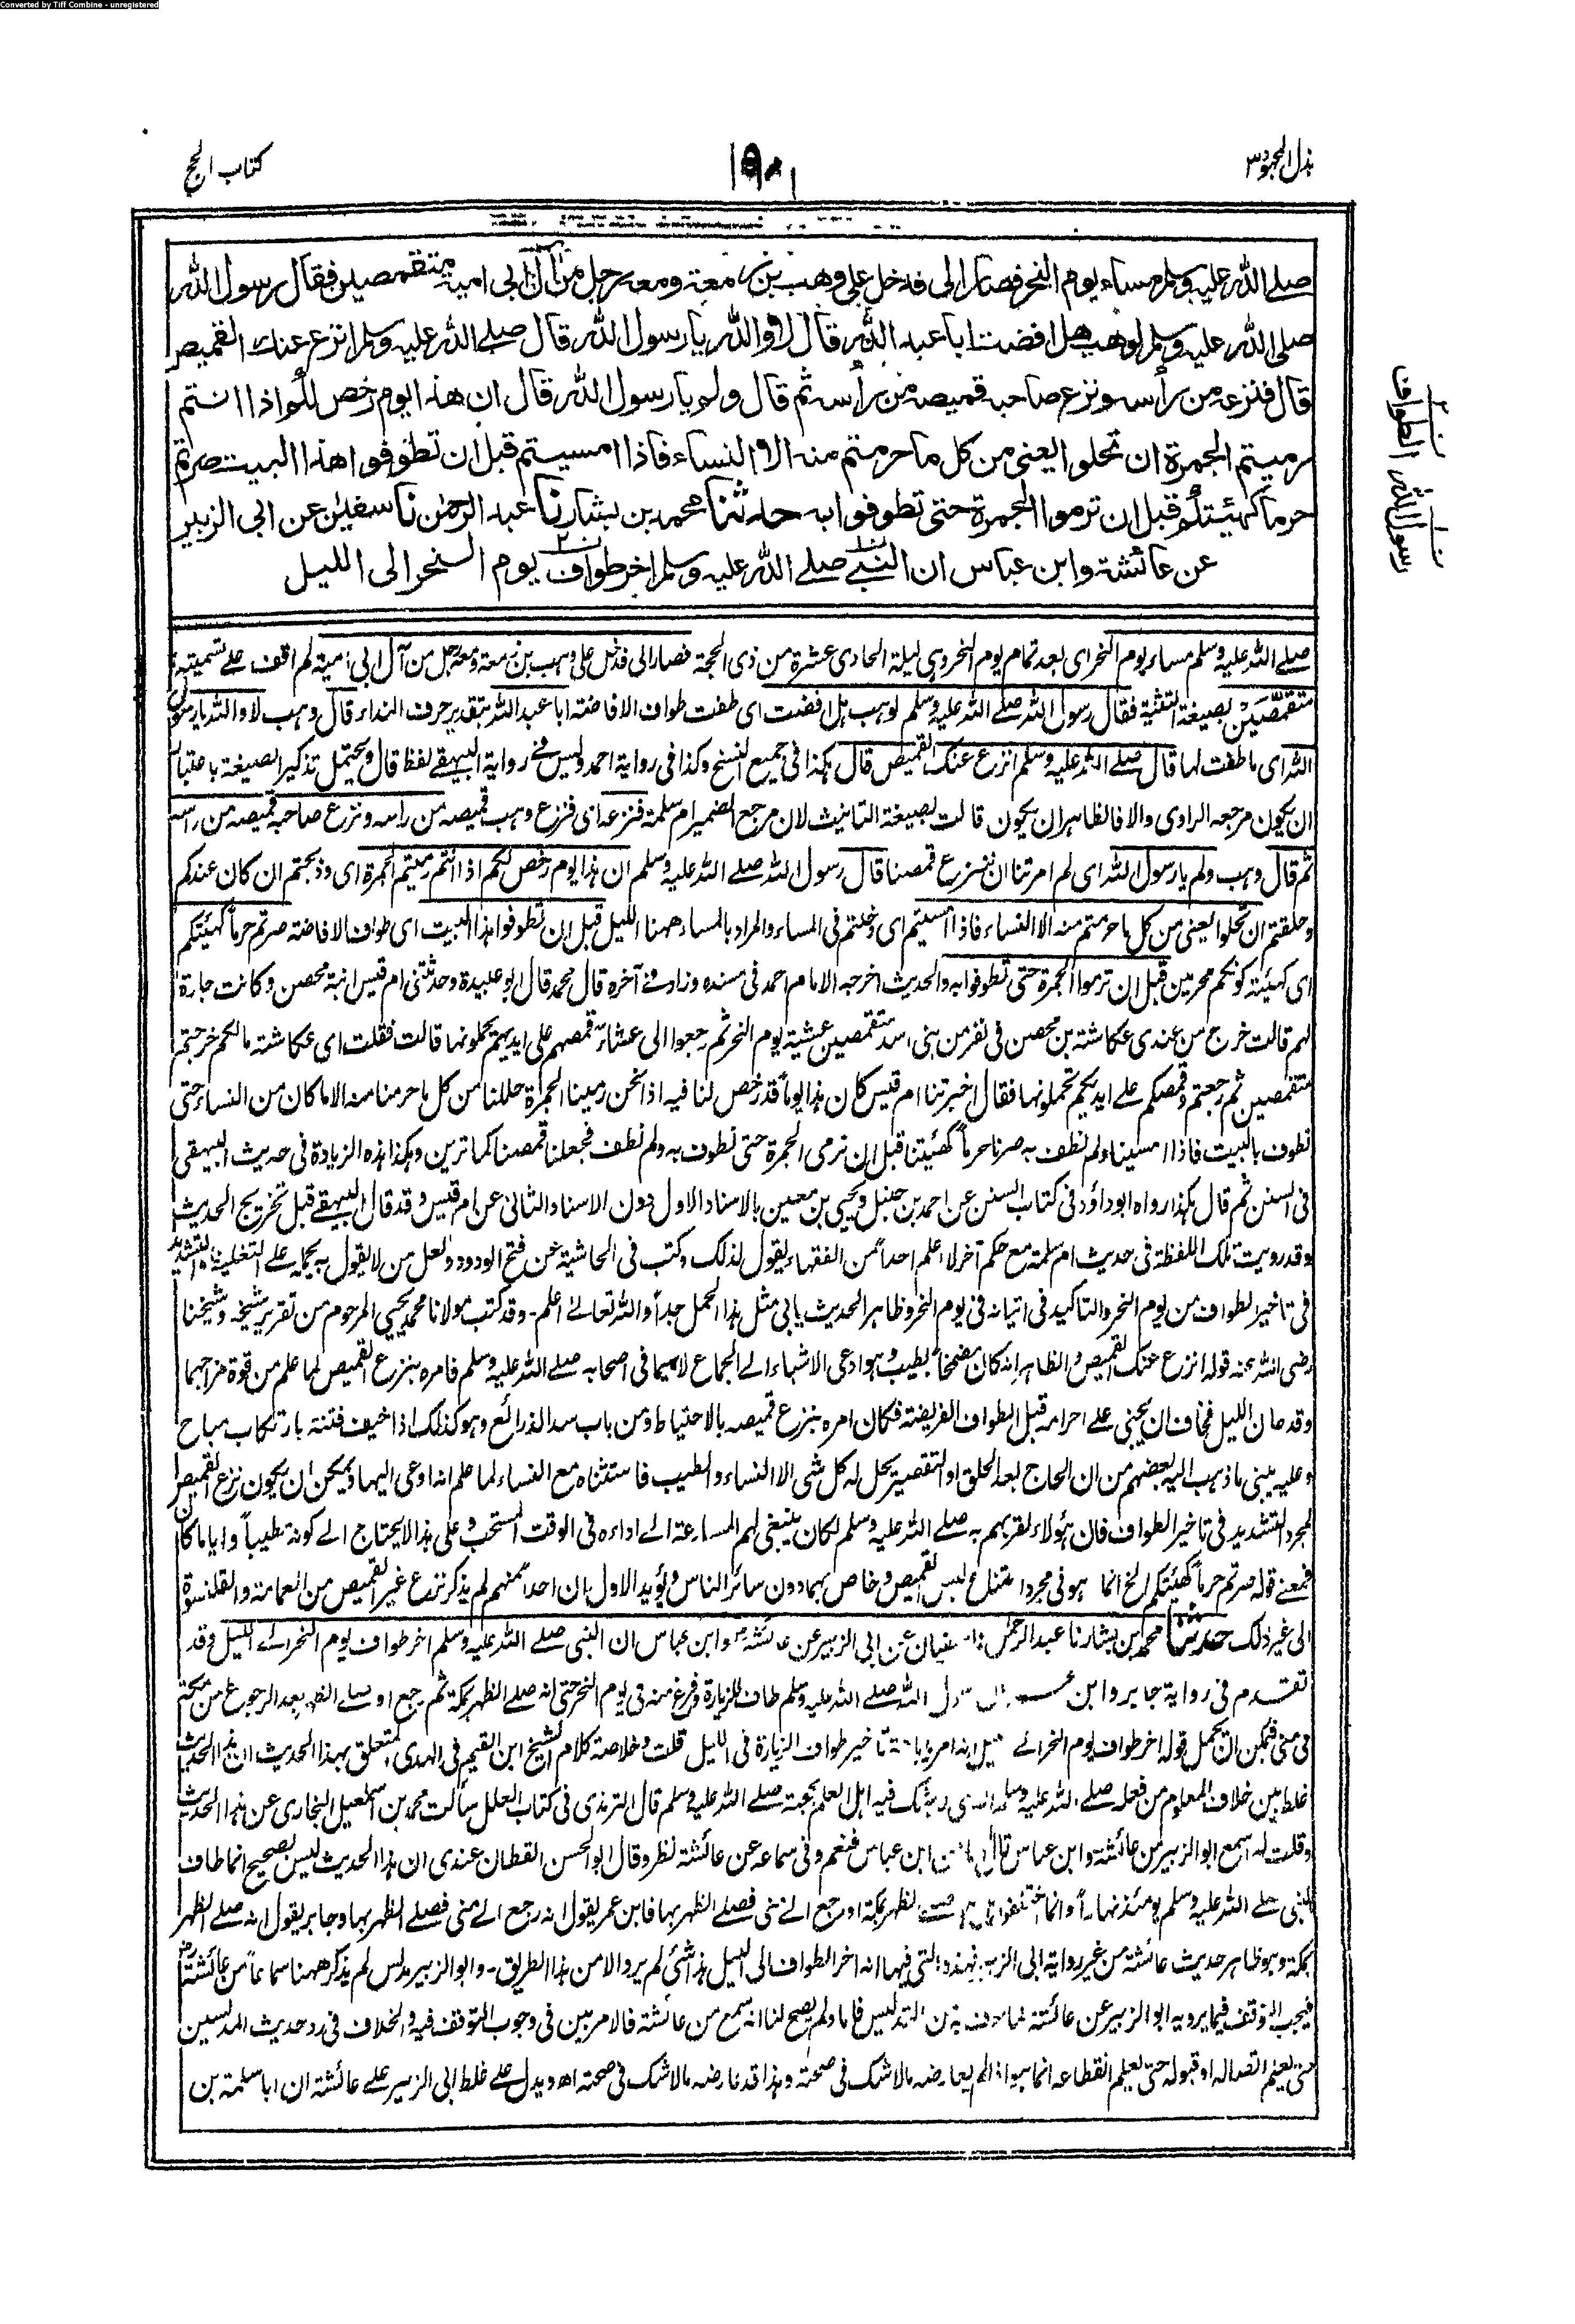 Converted by Tiff Combine - unregistered
بذل المجهود ٣
كتاب الحج
صلے الله عليه وسلم مساء يوم النحر فصار الى فدخل على وهب بن زمعة ومعه رجل من آل ابى امية متقمصين فقال رسول الله
صلى الله عليه وسلم لوهب هل افضت ابا عبد الله قال لا والله يا رسول الله قال صلے الله عليه وسلم انزع عنك القميص
قال فنزعه من رأسه ونزع صاحبه قميصه من رأسه ثم قال ولم يا رسول الله قال ان هذا يوم رخص لكم اذا انتم
رميتم الجمرة ان تحلوا يعنى من كل ما حرمتم منه الا النساء فاذا امسيتم قبل ان تطوفوا هذا البيت صرتم
حرما كهيئتكم قبل ان ترموا الجمرة حتى تطوفوا به حدثنا محمد بن بشار نا عبد الرحمٰن نا سفيٰن عن ابى الزبير
عن عائشة وابن عباس ان النبے صلے الله عليه وسلم اخر طواف يوم النحر الى الليل
ن الطواف
ن رسول الله
صلے الله عليه وسلم مساء يوم النحر اى بعد تمام يوم النحر وہى ليلة الحادى عشرة من ذى الحجة فصار الى فدخل على وہب بن زمعة ومعه رجل من آل ابى امية لم اقف علے تسميته
متقمصين بصيغة التثنية فقال رسول الله صلے الله عليه وسلم لوہب ہل افضت اى طفت طواف الافاضة ابا عبد الله بتقدير حرف النداء قال وہب لا والله يا رسول
الله اى ما طفت لها قال صلے الله عليه وسلم انزع عنك القميص قال ہكذا فى جميع النسخ وكذا فى رواية احمد وليس فے رواية البيہقے لفظ قال ويحتمل تذكير الصيغة باعتبار
ان يكون مرجعه الراوى والا فالظاہر ان يكون قالت بصيغة التانيث لان مرجع الضمير ام سلمة فنزعه اى فنزع وہب قميصه من راسه ونزع صاحبه قميصه من راسه
ثم قال وہب ولم يا رسول الله اى لم امرتنا ان ننزع قمصنا قال رسول الله صلے الله عليه وسلم ان ہذا يوم رخص لكم اذا انتم رميتم الجمرة اى وذبحتم ان كان عندكم
وحلقتم ان تحلوا يعنى من كل ما حرمتم منه الا النساء فاذا امسيتم اى دخلتم فى المساء والمراد بالمساء ههنا الليل قبل ان تطوفوا ہذا البيت اى طواف الافاضة صرتم حرماً كهيئتكم
اى كهيئة كونكم محرمين قبل ان ترموا الجمرة حتى تطوفوا به والحديث اخرجه الامام احمد فى مسنده وزاد فے آخره قال محمد قال ابو عبيدة وحدثتنى ام قيس ابنة محصن وكانت جارة
لهم قالت خرج من عندى عكاشة بن محصن فى نفر من بنى اسد متقمصين عشية يوم النحر ثم رجعوا الى عشاء قمصهم على ايديهم يحملونها قالت فقلت اى عكاشة مالكم خرجتم
متقمصين ثم رجعتم وقمصكم علے ايديكم تحملونها فقال اخبرتنا ام قيس كان ہذا يوماً قد رخص لنا فيه اذا نحن رمينا الجمرة حللنا من كل ما حرمنا منه الا ما كان من النساء حتى
نطوف بالبيت فاذا امسينا ولم نطف به صرنا حرماً كهيئتنا قبل ان نرمى الجمرة حتى نطوف به ولم نطف فجعلنا قمصنا كما ترين وہكذا ہذه الزيادة فى حديث البيہقى
فى السنن ثم قال ہكذا رواه ابو داؤد فى كتاب السنن عن احمد بن حنبل ويحيى بن معين بالاسناد الاول دون الاسناد الثانى عن ام قيس وقد قال البيہقے قبل تخريج الحديث
وقد رويت تلك اللفظة فى حديث ام سلمة مع حكم آخر لا اعلم احداً من الفقهاء يقول لذلك وكتب فى الحاشية عن فتح الودود ولعل من لا يقول به يحمله علے التغليظ والتشديد
فى تاخير الطواف من يوم النحر والتاكيد فى اتيانه فى يوم النحر وظاہر الحديث يابى مثل ہذا الحمل جداً والله تعالے اعلم۔ وقد كتب مولانا محمد يحيى المرحوم من تقرير شيخه وشيخنا
رضى الله عنه قوله انزع عنك القميص والظاہر انه كان مضمخا بطيب وہو ادعى الاشياء الے الجماع لا سيما فى اصحابه صلے الله عليه وسلم فامره بنزع القميص لما علم من قوة مزاجهما
وقد حان الليل فخاف ان يجنى علے احرامه قبل الطواف الفريضة فكان امره بنزع قميصه بالاحتياط ومن باب سد الذرائع وہو كذلك اذا خيف فتنة بارتكاب مباح
وعليه يبنى ما ذہب اليه بعضهم من ان الحاج بعد الحلق او التقصير يحل له كل شى الا النساء والطيب فاستثناه مع النساء لما علم انه ادعى اليها ويمكن ان يكون نزع القميص
لمجرد التشديد فى تاخير الطواف فان ہؤلاء لقربهم به صلے الله عليه وسلم لكان ينبغى لهم المسارعة الے اداءه فى الوقت المستحب وعلى ہذا لا يحتاج الے كونه تطيباً وايا ما كان
فمعنے قوله صرتم حرماً كهيئتكم الخ انما ہو فى مجرد امتناع لبس القميص وخاص بهما دون سائر الناس ويؤيد الاول ان احداً منهم لم يذكر نزع غير القميص من العمامة والقلنسوة
الى غير ذلك حدثنا محمد بن بشار نا عبد الرحمٰن نا سفيان عن ابى الزبير عن عائشة وابن عباس ان النبى صلے الله عليه وسلم اخر طواف يوم النحر الے الليل وقد
تقدم فى رواية جابر وابن الله صلے الله عليه وسلم طاف للزيارة وفرغ منه فى يوم النحر حتى انه صلے الظهر بمكة ثم رجع او صلے الظهر بعد الرجوع من مكة
فى منى فيمكن ان يحمل قوله اخر طواف يوم النحر الے تاخير طواف الزيارة فى الليل قلت وخلاصة كلام الشيخ ابن القيم فى الهدى المتعلق بهذا الحديث ان ہذا الحديث
غلط بين خلاف المعلوم من فعله صلے الله عليه وسلم فيه اہل العلم بحجته صلے الله عليه وسلم قال الترمذى فى كتاب العلل سألت محمد بن اسمٰعيل البخارى عن ہذا الحديث
وقلت له اسمع ابو الزبير من عائشة وابن عباس قال ابن عباس فنعم وفى سماعه عن عائشة نظر وقال ابو الحسن القطان عندى ان ہذا الحديث ليس بصحيح انما طاف
النبى صلے الله عليه وسلم يومئذ نهاراً وانما اختلفوا الظهر بمكة او رجع الے منى فصلے الظهر بها فابن عمر يقول انه رجع الے منى فصلے الظهر بها وجابر يقول انه صلے الظهر
بمكة وہو ظاہر حديث عائشة من غير رواية ابى الزبير ہذه التى فيها انه اخر الطواف الى الليل ہذا شئى لم يرو الا من ہذا الطريق۔ وابو الزبير مدلس لم يذكر ههنا سماعاً من عائشة
فيجب التوقف فيما يرويه ابو الزبير عن عائشة التدليس فاما ولم يصح لنا انه سمع من عائشة فالامر بين فى وجوب التوقف فيه والخلاف فى رد حديث المدلسين
حتى يعلم اتصاله او قبوله حتى يعلم انقطاعه انما ہو اذا لم يعارضه مالا شك فى صحته وہذا قد عارضه مالا شك فى صحته اھ ويدل علے غلط ابى الزبير علے عائشة ان ابا سلمة بن